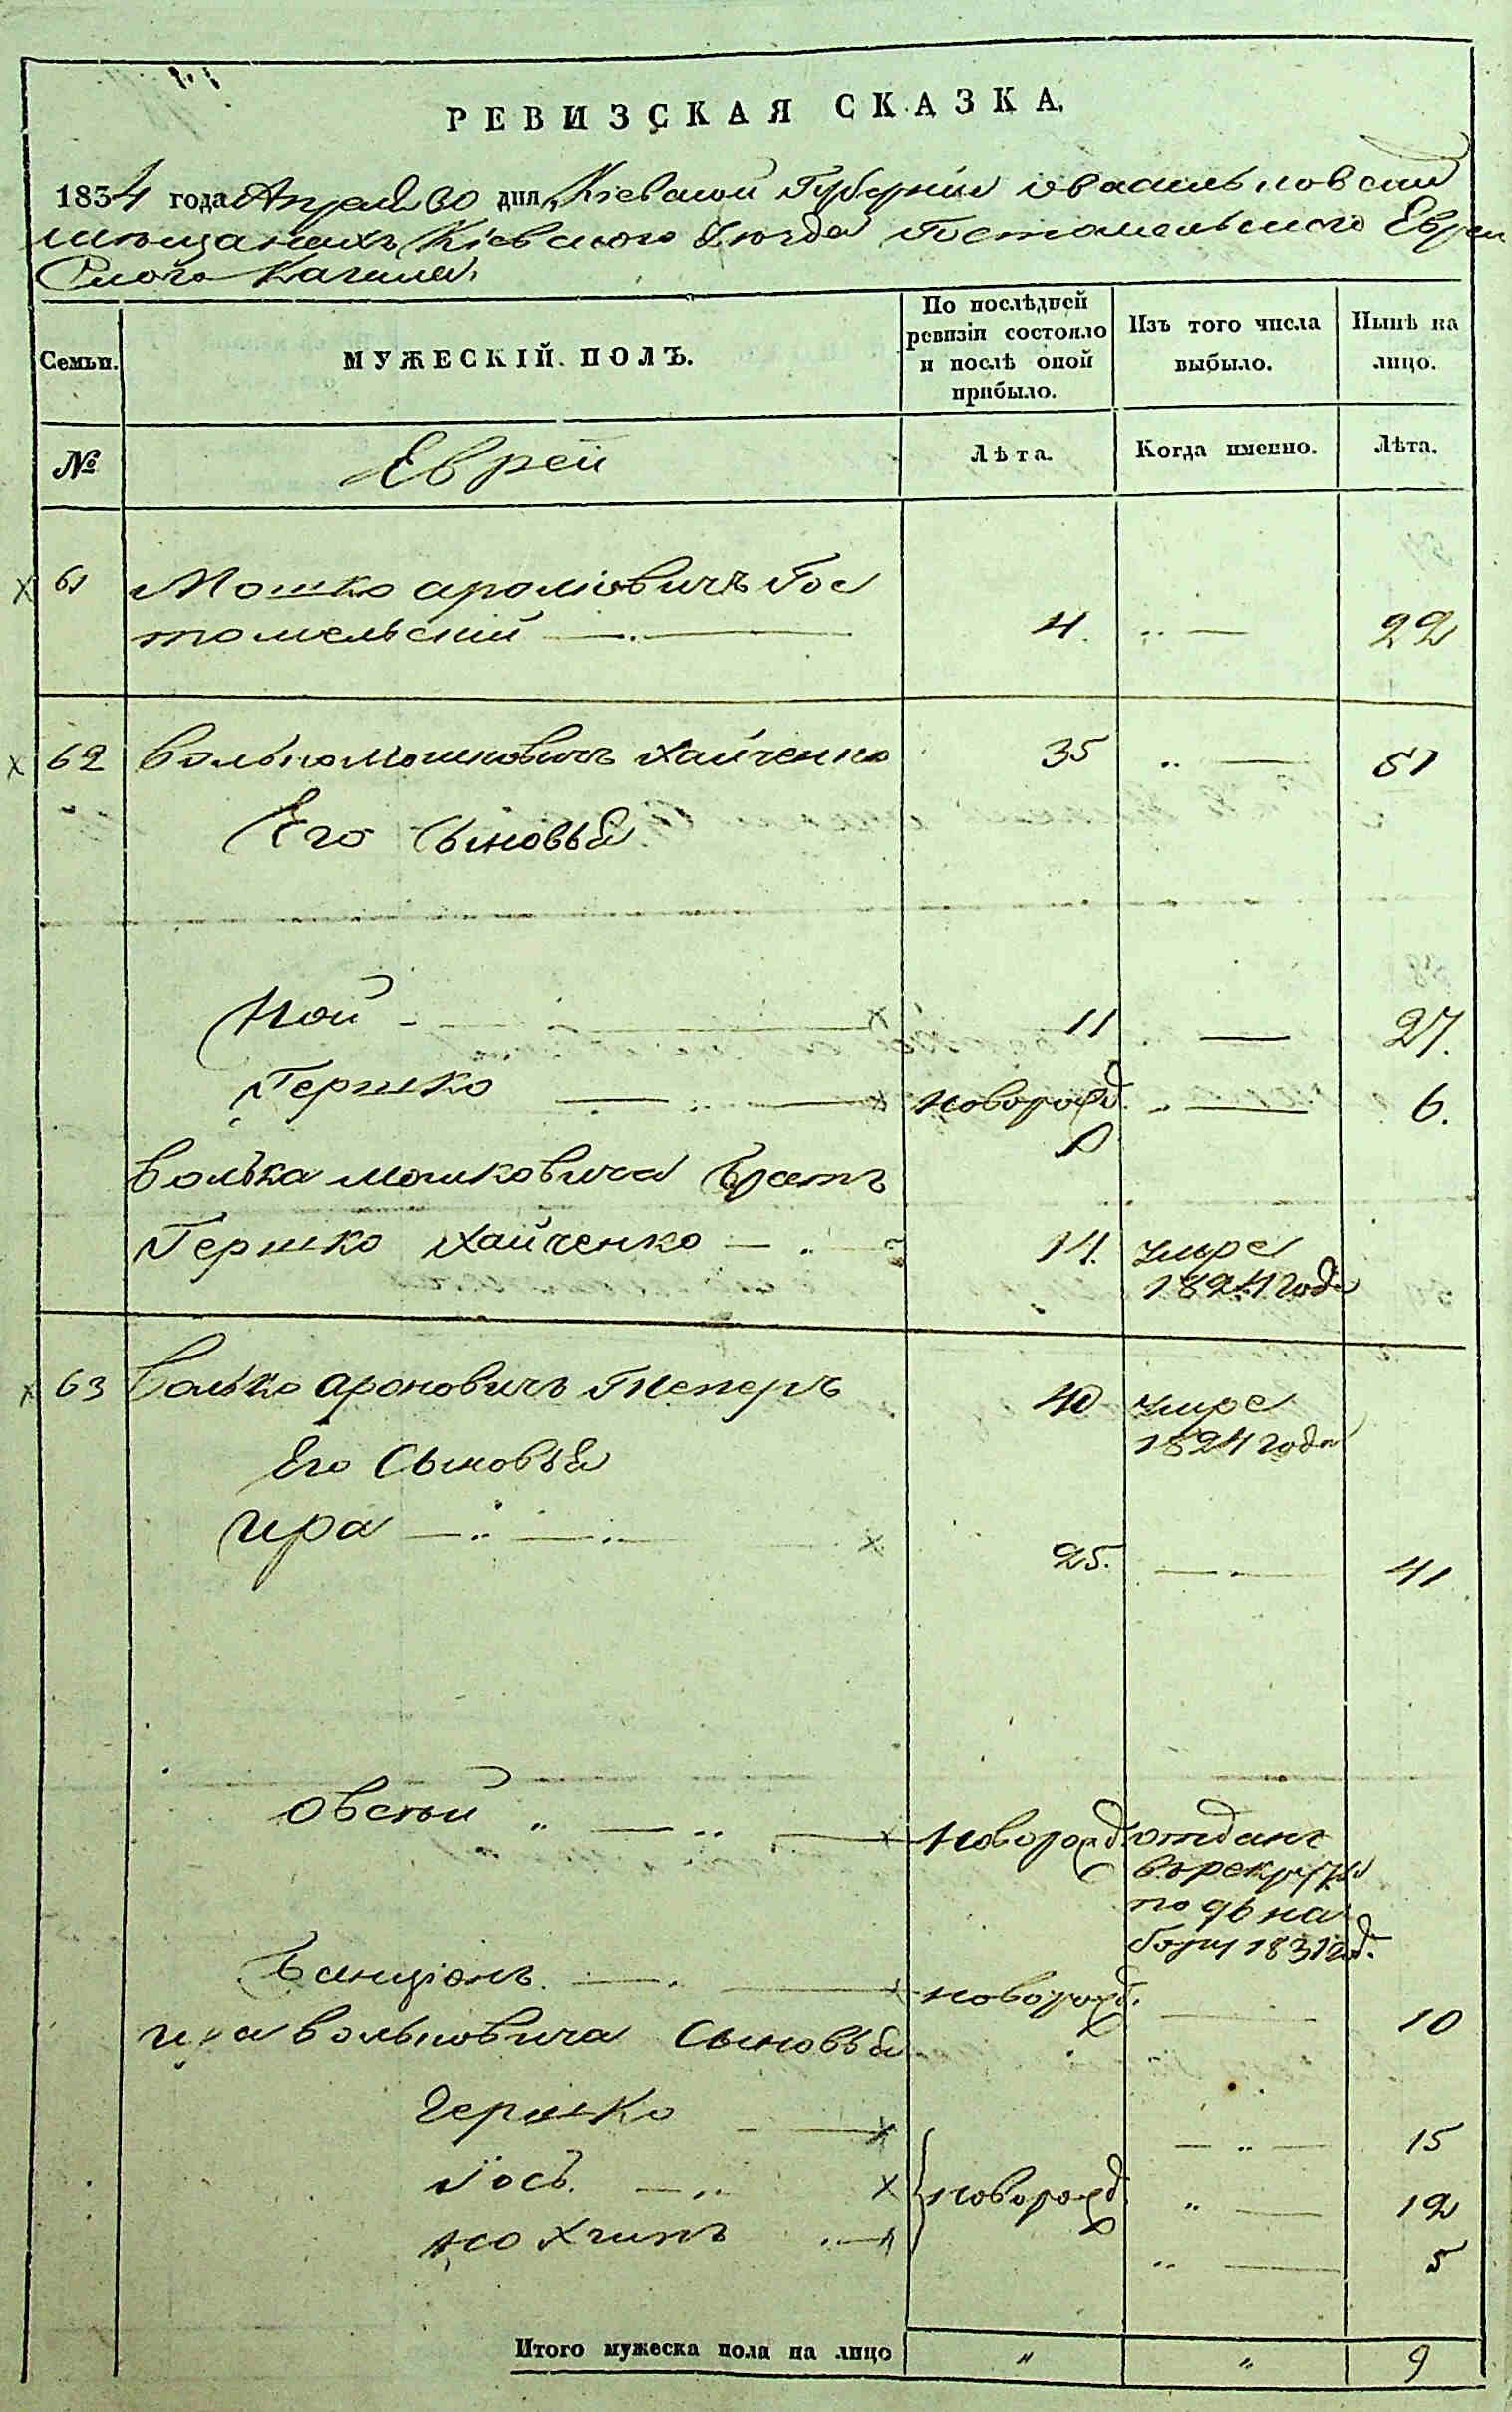 РЕВИЗСКАЯ СКАЗКА.
1834 года Апреля 30 дня, Кіевской Губерніи Васильковскій
мещанехъ Кіевского Уезда Гостомельского Еврей
ского Кагала.
Семьи.
МУЖЕСКІЙ ПОЛЪ.
По послѣдней ревизіи состояло и послѣ оной прибыло.
Изъ того числа выбыло.
Нынѣ на лицо.
№
Еврей
Лѣта.
Когда именно.
Лѣта.
61 Мошко Ароновичъ Гос
томельскій 4. 22
62 Волько Мошковичъ Хайченко 35 51
Его Сыновья
Ной 11 27.
Гершко новорожд. 6.
Волька Мошковича Братъ
Гершко Хайченко 14. умре
1824 года
63 Волько Ароновичъ Теперъ 40 умре
1824 года
Его Сыновья
Ира 25. 41
Овсѣй новорожд. отданъ
въ рекруты
по 96 на
бору 1831 год.
Банціонъ новорожд. 10
Ира Вольковича Сыновья
Гершко 15
Іось новорожд. 12
Нохимъ 5
Итого мужеска пола на лицо " " 9